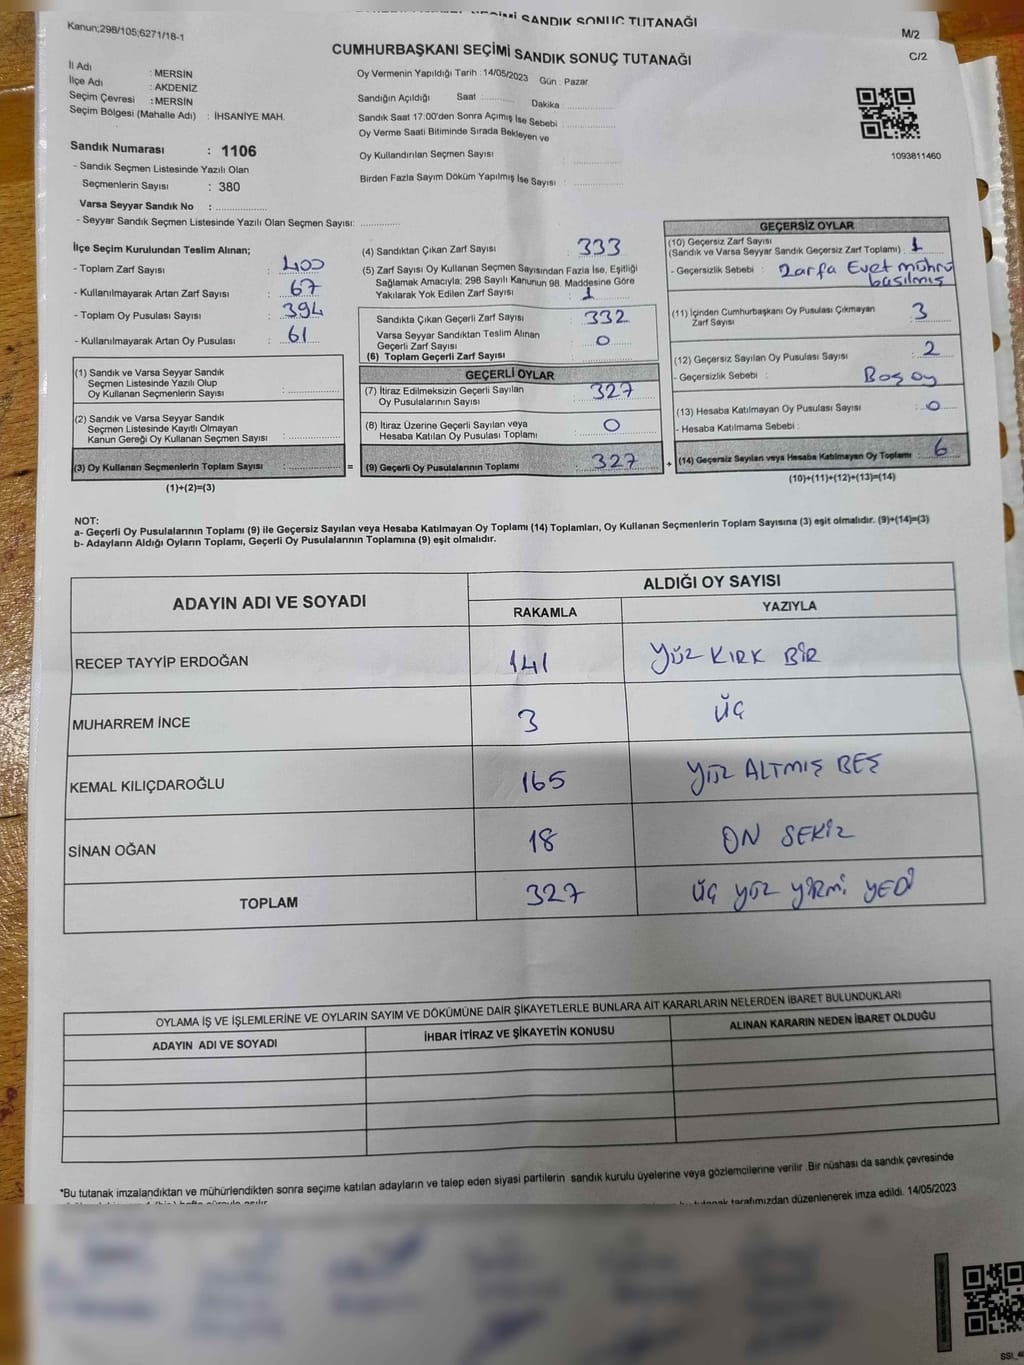 SANDIK SONUÇ TUTANAĞI
M/2
Kanun;298/105;6271/18-1
CUMHURBAŞKANI SEÇİMİ SANDIK SONUÇ TUTANAĞI
C/2
İl Adı : MERSİN
İlçe Adı : AKDENİZ
Seçim Çevresi : MERSİN
Seçim Bölgesi (Mahalle Adı) : İHSANİYE MAH.
Oy Vermenin Yapıldığı Tarih : 14/05/2023 Gün : Pazar
Sandığın Açıldığı Saat :......... Dakika :..............
Sandık Saat 17:00'den Sonra Açımış İse Sebebi :..............
Oy Verme Saati Bitiminde Sırada Bekleyen ve
Oy Kullandırılan Seçmen Sayısı :..............
Birden Fazla Sayım Döküm Yapılmış İse Sayısı :..............
1093811460
Sandık Numarası : 1106
- Sandık Seçmen Listesinde Yazılı Olan
Seçmenlerin Sayısı : 380
Varsa Seyyar Sandık No :..............
- Seyyar Sandık Seçmen Listesinde Yazılı Olan Seçmen Sayısı: ...........
İlçe Seçim Kurulundan Teslim Alınan;
- Toplam Zarf Sayısı : 400
- Kullanılmayarak Artan Zarf Sayısı : 67
- Toplam Oy Pusulası Sayısı : 394
- Kullanılmayarak Artan Oy Pusulası : 61
(1) Sandık ve Varsa Seyyar Sandık
Seçmen Listesinde Yazılı Olup
Oy Kullanan Seçmenlerin Sayısı :..............
(2) Sandık ve Varsa Seyyar Sandık
Seçmen Listesinde Kayıtlı Olmayan
Kanun Gereği Oy Kullanan Seçmen Sayısı :..............
(3) Oy Kullanan Seçmenlerin Toplam Sayısı :.............. =
(1)+(2)=(3)
(4) Sandıktan Çıkan Zarf Sayısı : 333
(5) Zarf Sayısı Oy Kullanan Seçmen Sayısından Fazla İse, Eşitliği
Sağlamak Amacıyla; 298 Sayılı Kanunun 98. Maddesine Göre
Yakılarak Yok Edilen Zarf Sayısı : 1
Sandıkta Çıkan Geçerli Zarf Sayısı : 332
Varsa Seyyar Sandıktan Teslim Alınan
Geçerli Zarf Sayısı : 0
(6) Toplam Geçerli Zarf Sayısı :
GEÇERLİ OYLAR
(7) İtiraz Edilmeksizin Geçerli Sayılan
Oy Pusulalarının Sayısı : 327
(8) İtiraz Üzerine Geçerli Sayılan veya
Hesaba Katılan Oy Pusulası Toplamı : 0
(9) Geçerli Oy Pusulalarının Toplamı : 327 +
GEÇERSİZ OYLAR
(10) Geçersiz Zarf Sayısı
(Sandık ve Varsa Seyyar Sandık Geçersiz Zarf Toplamı) : 1
- Geçersizlik Sebebi : Zarfa Evet mührü
basılmış
(11) İçinden Cumhurbaşkanı Oy Pusulası Çıkmayan
Zarf Sayısı : 3
(12) Geçersiz Sayılan Oy Pusulası Sayısı : 2
- Geçersizlik Sebebi : Boş oy
(13) Hesaba Katılmayan Oy Pusulası Sayısı : 0
- Hesaba Katılmama Sebebi :
(14) Geçersiz Sayılan veya Hesaba Katılmayan Oy Toplamı : 6
(10)+(11)+(12)+(13)=(14)
NOT:
a- Geçerli Oy Pusulalarının Toplamı (9) ile Geçersiz Sayılan veya Hesaba Katılmayan Oy Toplamı (14) Toplamları, Oy Kullanan Seçmenlerin Toplam Sayısına (3) eşit olmalıdır. (9)+(14)=(3)
b- Adayların Aldığı Oyların Toplamı, Geçerli Oy Pusulalarının Toplamına (9) eşit olmalıdır.
ADAYIN ADI VE SOYADI
ALDIĞI OY SAYISI
RAKAMLA YAZIYLA
RECEP TAYYİP ERDOĞAN 141 YÜZ KIRK BİR
MUHARREM İNCE 3 ÜÇ
KEMAL KILIÇDAROĞLU 165 YÜZ ALTMIŞ BEŞ
SİNAN OĞAN 18 ON SEKİZ
TOPLAM 327 ÜÇ YÜZ YİRMİ YEDİ
OYLAMA İŞ VE İŞLEMLERİNE VE OYLARIN SAYIM VE DÖKÜMÜNE DAİR ŞİKAYETLERLE BUNLARA AİT KARARLARIN NELERDEN İBARET BULUNDUKLARI
ADAYIN ADI VE SOYADI İHBAR İTİRAZ VE ŞİKAYETİN KONUSU ALINAN KARARIN NEDEN İBARET OLDUĞU
*Bu tutanak imzalandıktan ve mühürlendikten sonra seçime katılan adayların ve talep eden siyasi partilerin sandık kurulu üyelerine veya gözlemcilerine verilir .Bir nüshası da sandık çevresinde
tutanak tarafımızdan düzenlenerek imza edildi. 14/05/2023